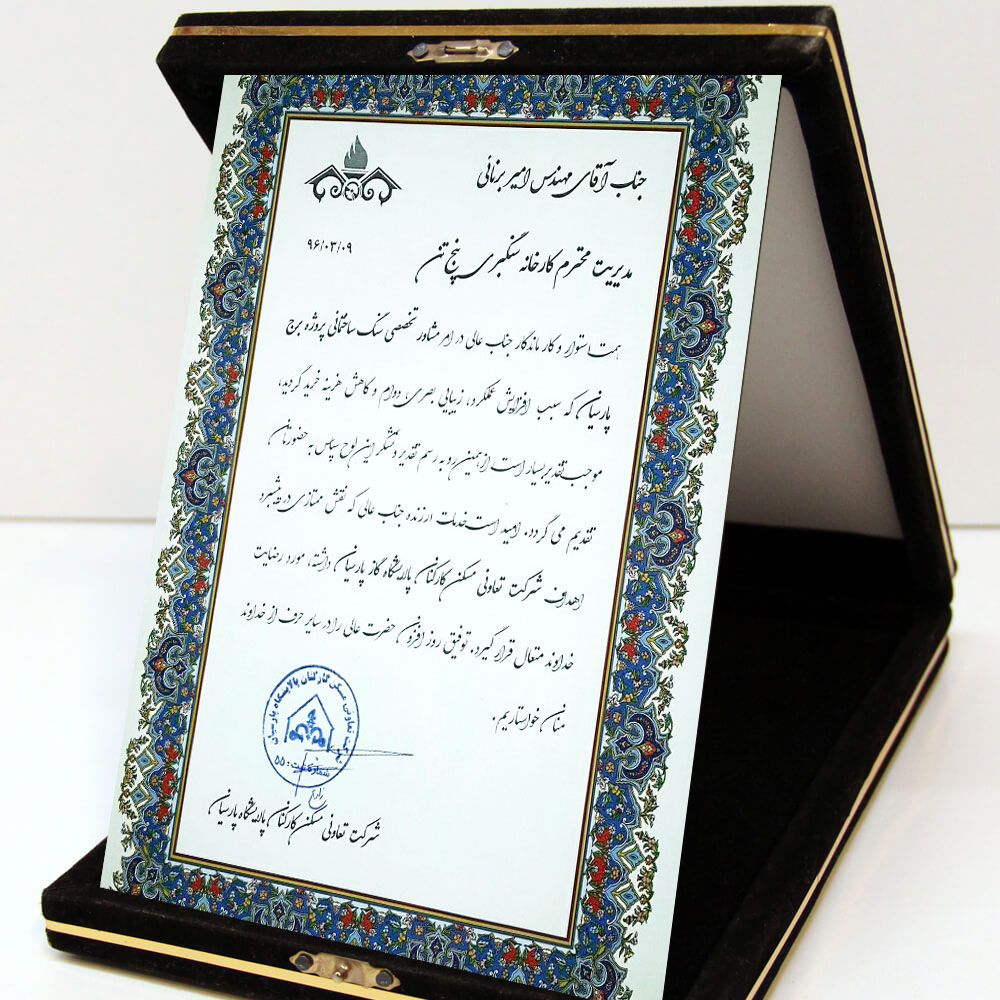 جناب آقای مهندس امیر برنائی
۹۶/۰۳/۰۹
مدیریت محترم کارخانه سنگبری پنج تن
همت استوار و کار ماندگار جناب عالی در امر مشاور تخصصی سنگ ساختمانی پروژه برج
پارسیان که سبب افزایش عملکرد، زیبایی بصری، دوام و کاهش هزینه خرید گردید،
موجب تقدیر بسیار است از همین رو به رسم تقدیر و تشکر این لوح سپاس به حضورتان
تقدیم می گردد. امید است خدمات ارزنده جناب عالی که نقش ممتازی در پیشبرد
اهداف شرکت تعاونی مسکن کارکنان پالایشگاه گاز پارسیان داشته، مورد رضایت
خداوند متعال قرار گیرد. توفیق روز افزون حضرت عالی را در سایر حرف از خداوند
منان خواستاریم.
شرکت تعاونی مسکن کارکنان پالایشگاه پارسیان
شماره ثبت: ۵۵
شرکت تعاونی مسکن کارکنان پالایشگاه پارسیان